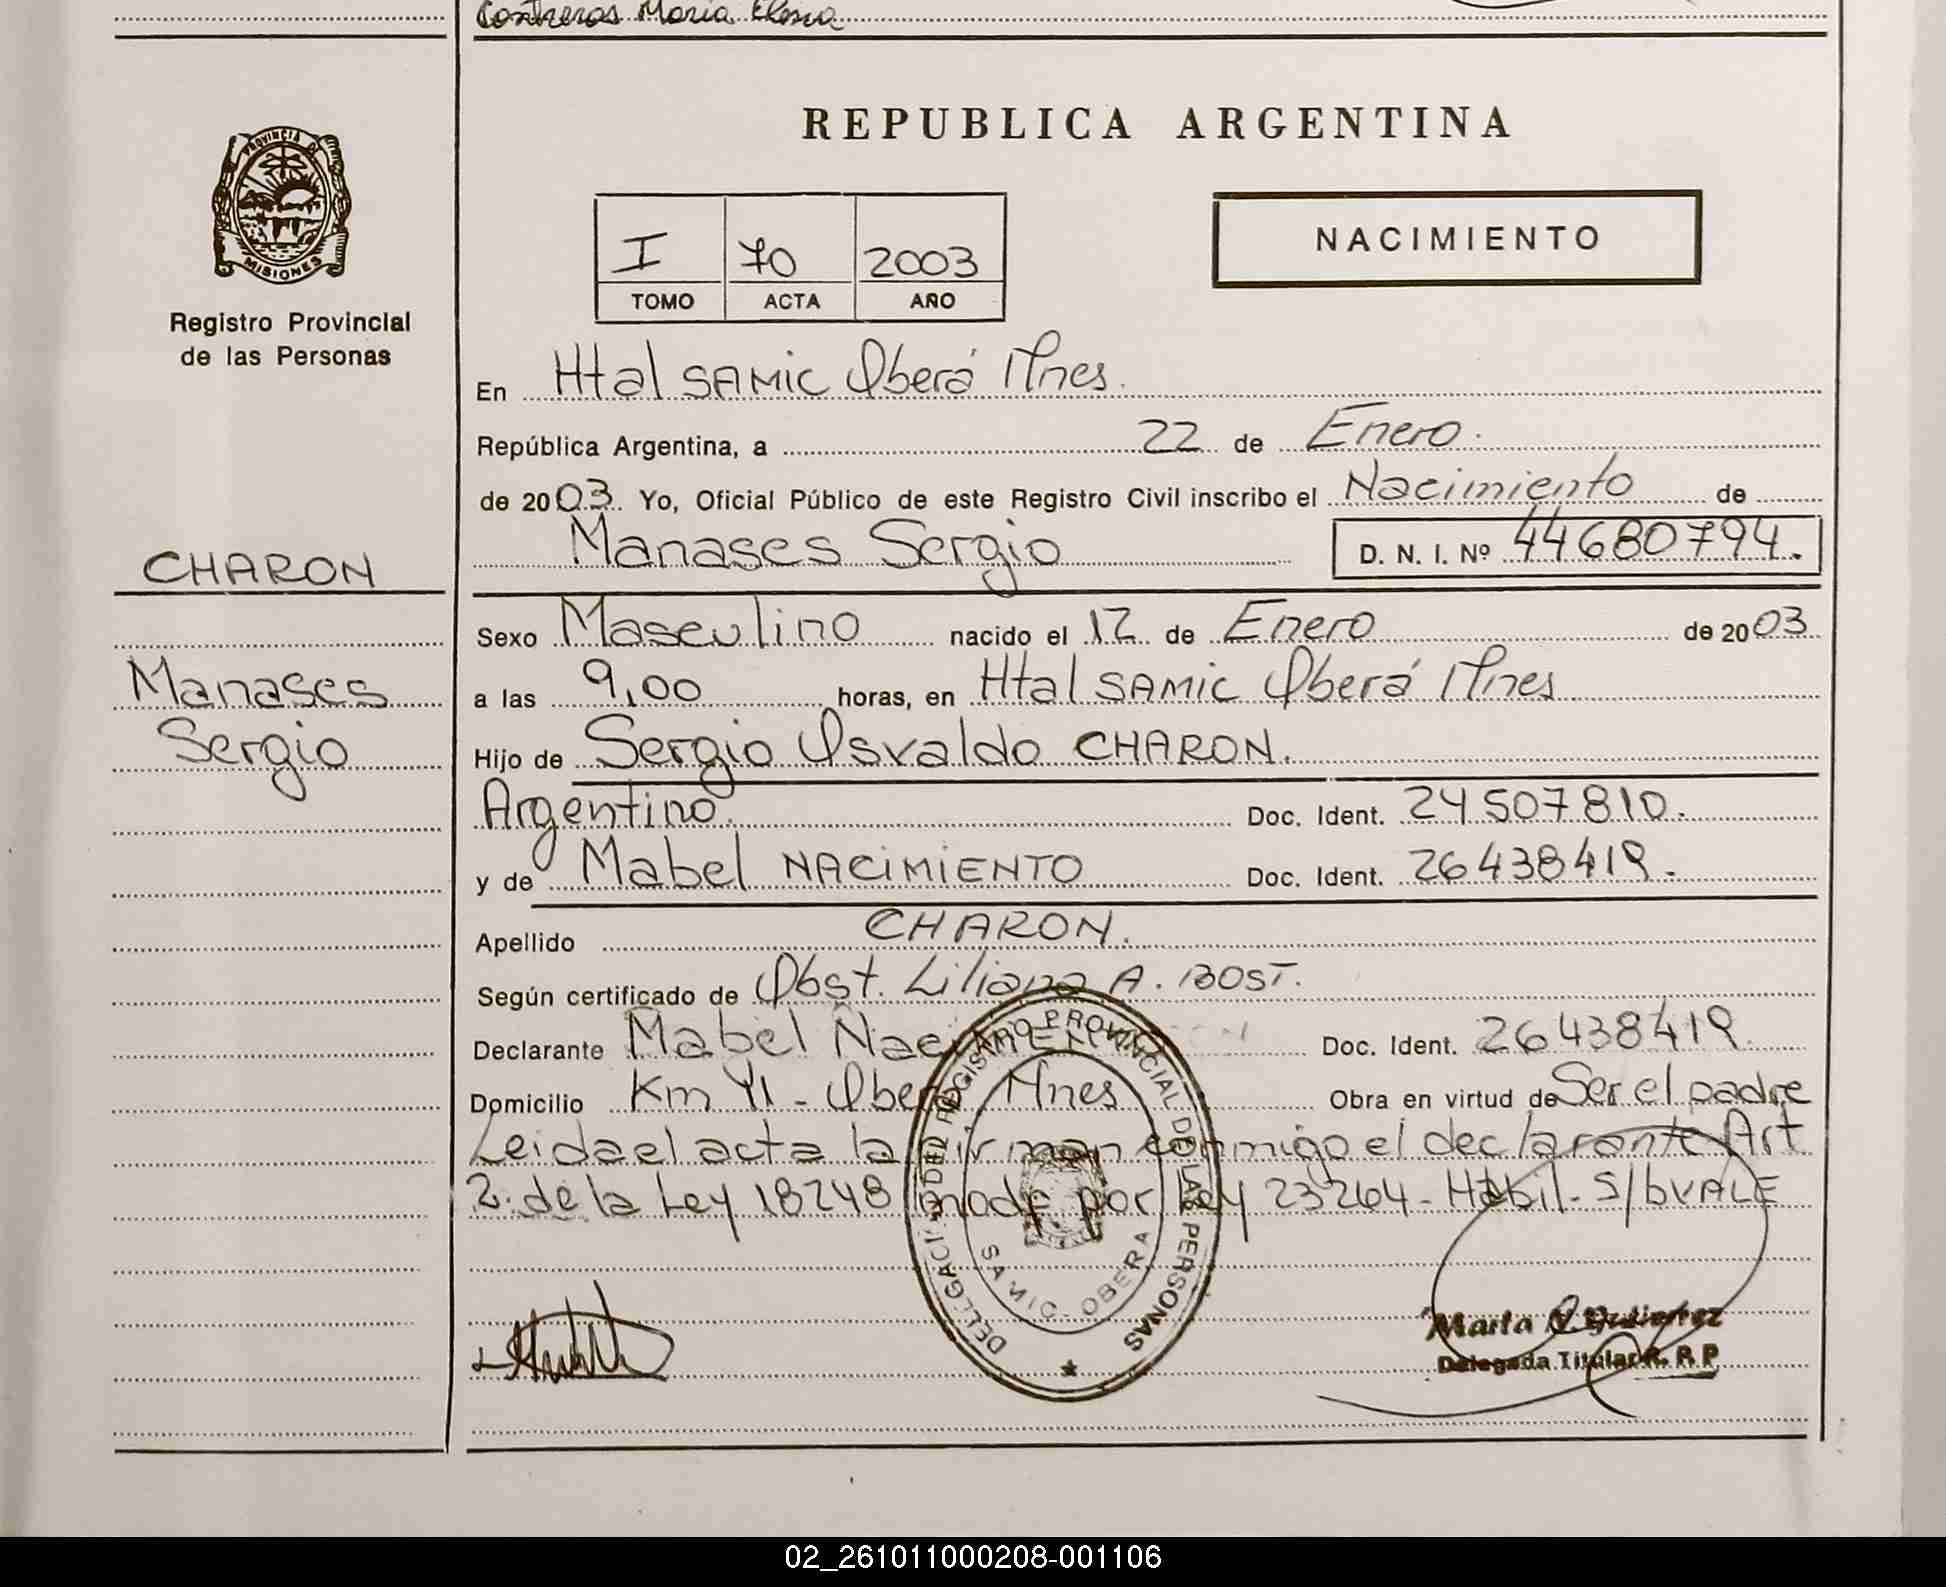 Contreras Maria Elena
REPUBLICA ARGENTINA
PROVINCIA DE
MISIONES
Registro Provincial
de las Personas
I 70 2003
TOMO ACTA AÑO
NACIMIENTO
En Htal SAMIC Oberá Mnes.
República Argentina, a 22 de Enero.
de 2003. Yo, Oficial Público de este Registro Civil inscribo el Nacimiento de
Manases Sergio D. N. I. Nº 44680794.
CHARON
Manases
Sergio
Sexo Masculino nacido el 12 de Enero de 2003
a las 9,00 horas, en Htal SAMIC Oberá Mnes
Hijo de Sergio Osvaldo CHARON.
Argentino. Doc. Ident. 24507810.
y de Mabel NACIMIENTO Doc. Ident. 26438419.
Apellido CHARON.
Según certificado de Obst. Liliana A. BOST.
Declarante Mabel Doc. Ident. 26438419
Domicilio Km Mnes Obra en virtud de Ser el padre
Leida el acta la firman conmigo el declarante Art
2. de la Ley 18248 modf. por Ley 23264 - Habil - S/b VALE
DELEGACION DEL REGISTRO PROVINCIAL DE LAS PERSONAS
SAMIC - OBERA
Marta Gutierrez
Delegada Titular R. P. P.
02_261011000208-001106